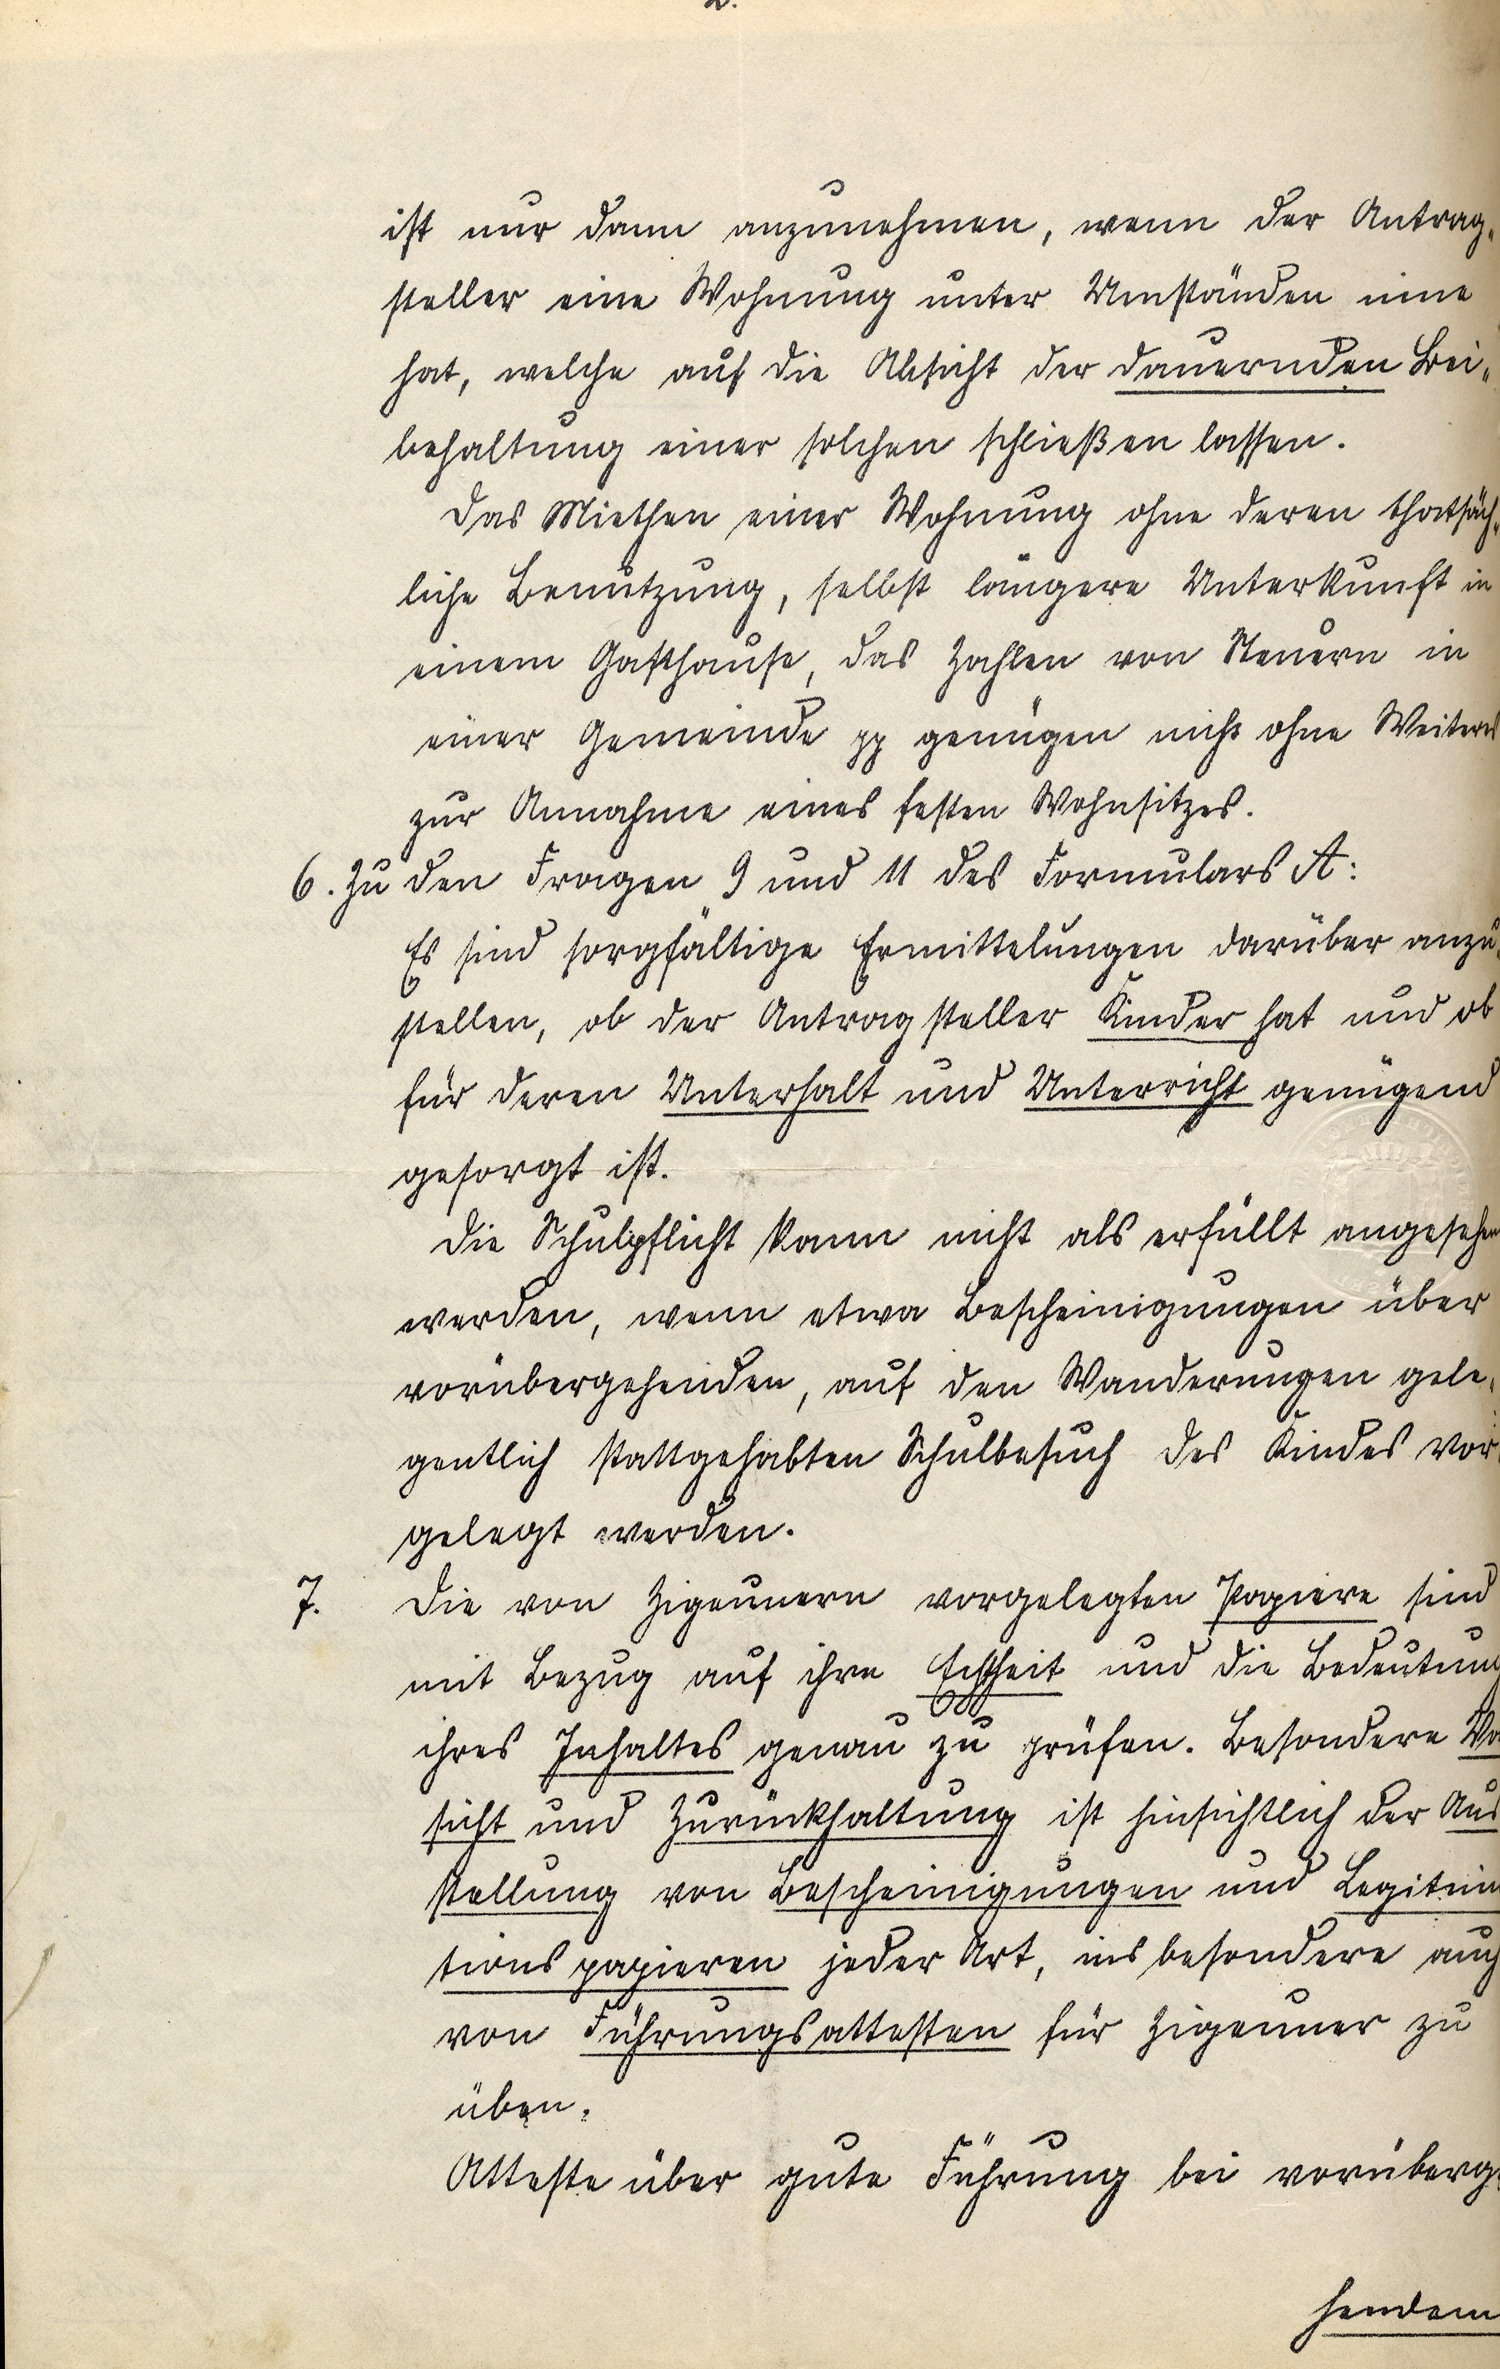 2.
ist nur dann anzunehmen, wenn der Antrag-
steller eine Wohnung unter Umständen inne
hat, welche auf die Absicht der dauernden Bei-
behaltung einer solchen schließen lassen.
Das Miethen einer Wohnung ohne deren thatsäch-
liche Benutzung, selbst längere Unterkunft in
einem Gasthause, das Zahlen von Steuern in
einer Gemeinde pp genügen nicht ohne Weiteres
zur Annahme eines festen Wohnsitzes.
6. Zu den Fragen 9 und 11 des Formulars A:
Es sind sorgfältige Ermittelungen darüber anzu-
stellen, ob der Antragsteller Kinder hat und ob
für deren Unterhalt und Unterricht genügend
gesorgt ist.
Die Schulpflicht kann nicht als erfüllt angesehen
werden, wenn etwa Bescheinigungen über
vorübergehenden, auf den Wanderungen gele-
gentlich stattgehabten Schulbesuch des Kindes vor-
gelegt werden.
7. Die von Zigeunern vorgelegten Papiere sind
mit Bezug auf ihre Echtheit und die Bedeutung
ihres Inhaltes genau zu prüfen. Besondere Vo
sicht und Zurückhaltung ist hinsichtlich der Aus
stellung von Bescheinigungen und Legitim
tionspapieren jeder Art, insbesondere auch
von Führungsattesten für Zigeuner zu
üben.
Atteste über gute Führung bei vorüberge
hendem